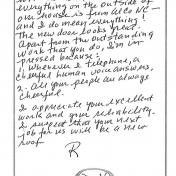 everything on the outside of
our house is from Alco We—
and I do mean everything!
The new door looks great.
Apart from the outstanding
work that you do, I'm im-
pressed because:
1. Whenever I telephone, a
cheerful human voice answers,
2. All your people are always
cheerful.
I appreciate your excellent
work and your reliability.
I suspect that your next
job for us will be a new
roof
R